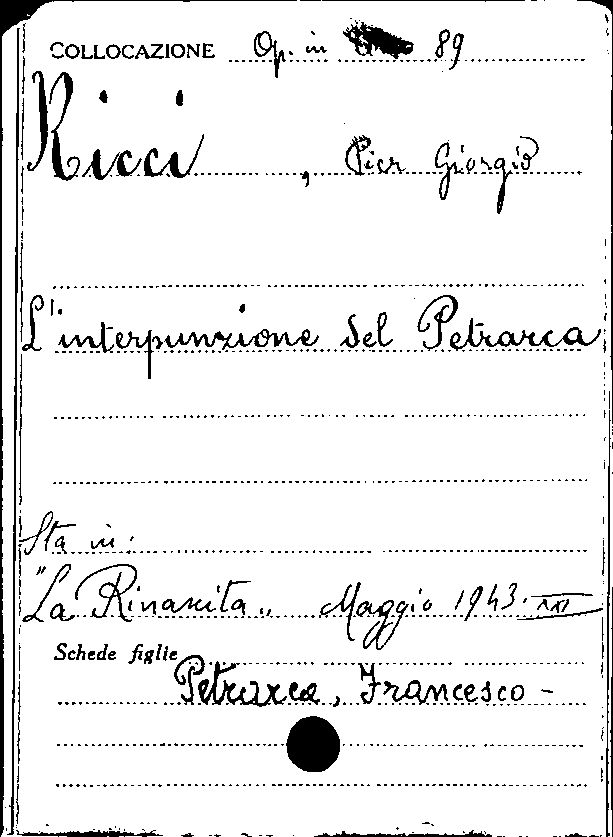 COLLOCAZIONE Op. in 89
Ricci, Pier Giorgio
L'interpunzione del Petrarca
Sta in:
"La Rinascita„ Maggio 1943. XXI
Schede figlie
Petrarca, Francesco -